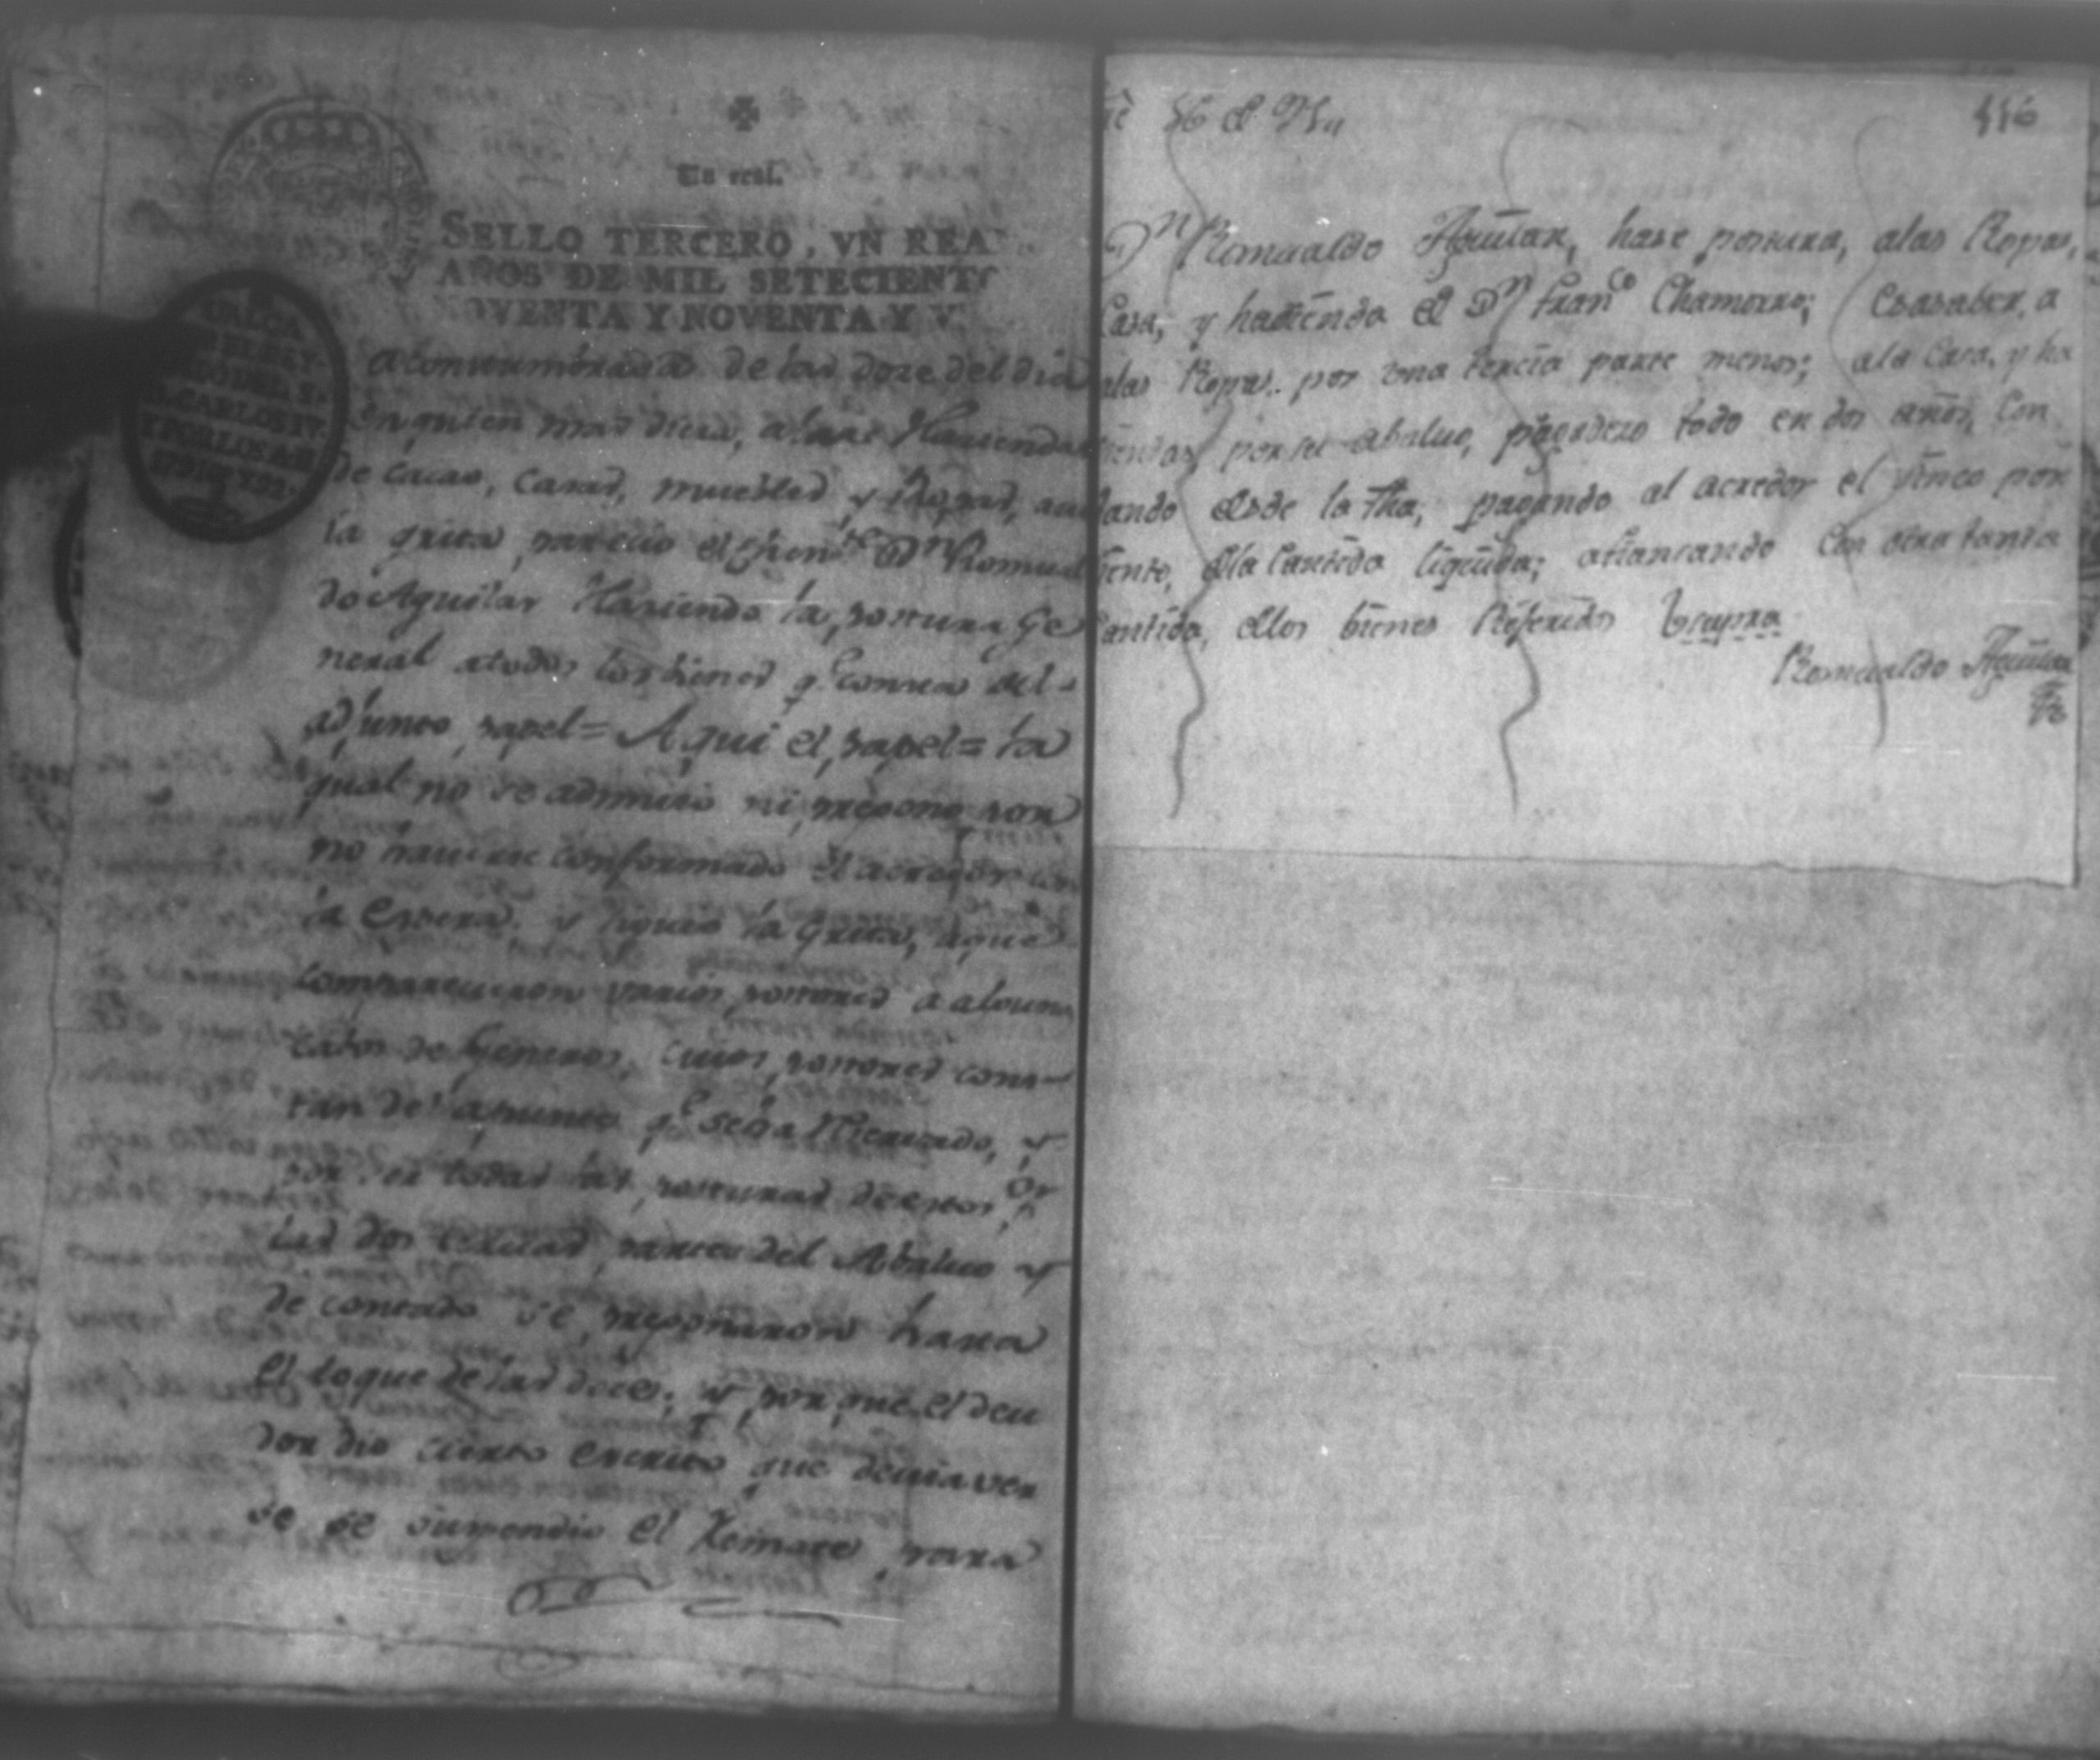 Un real.
SELLO TERCERO, VN REA
AÑOS DE MIL SETECIENTO
OVENTA Y NOVENTA Y V
VALGA
D. CARLOS IV.
Y POR LOS AÑ
acontumbrada de las doze del dia
en quien mas diera, a las Haciendas
de cacao, casas, muebles y Ropas, au
la grita parecio el then.te Dn Romual
do Aguilar Haziendo la postura Ge
neral a todos los bienes q.e consta del
adjunto papel = Aqui el papel = la
qual no se admitio ni pregono por
no haverse conformado el acreedor con
la espera. y siguio la grita, a que
comparecieron varios postores a algun
cabos de Generos, cuios postores cons-
tan del apunte q.e será Mercado, y
por ser todas las posturas de estos p.r
las dos tercias partes del Abaluo y
de contado se pregonaron hasta
el toque de las doce; y por que el deu
dor dio cierto escrito que devia ver
se se suspendio el Remate para
116
Dn Romualdo Aguilar, hase postura, alas Ropas,
Casa, y hacienda de Dn Fran.co Chamorro; Esasaber, a
alas Ropas. por una tercia parte menos; ala Casa, y ha
siendas, por su abaluo, pagadero todo en dos años, Con
tando desde la fha, pagando al acredor el sinco por
siento, de la Cantida liquida; afiansando Con otra tanta
Cantida, de los bienes Referidos
Romualdo Aguilar